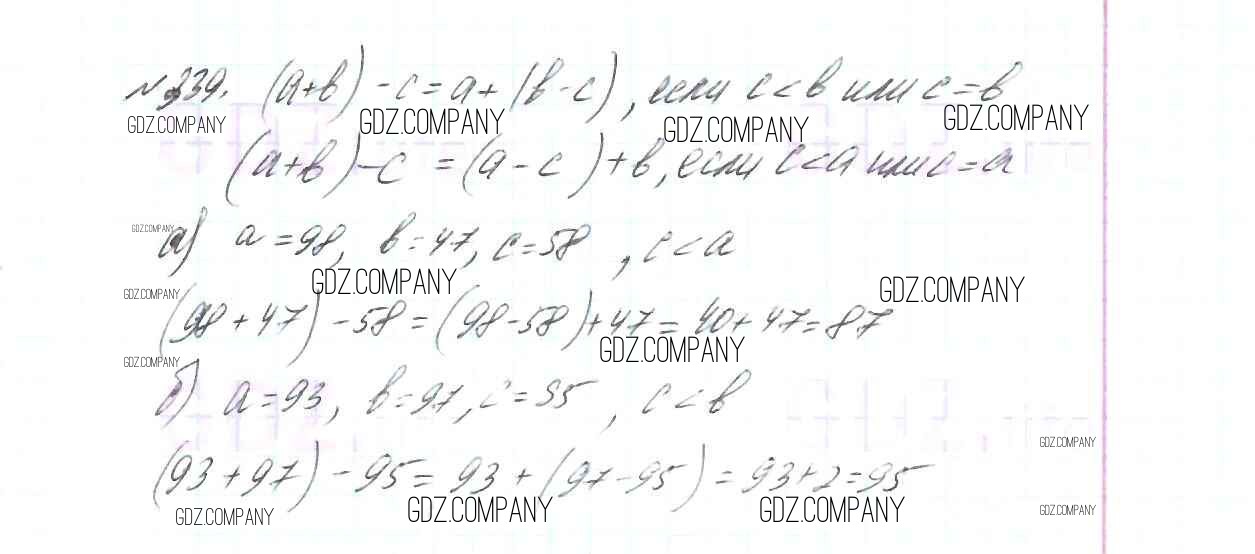 №339. (a+b)-c=a+(b-c), если c<b или c=b
GDZ.COMPANY GDZ.COMPANY GDZ.COMPANY GDZ.COMPANY
(a+b)-c=(a-c)+b, если c<a или c=a
GDZ.COMPANY
а) a=98, b=47, c=58, c<a
GDZ.COMPANY GDZ.COMPANY GDZ.COMPANY
(98+47)-58=(98-58)+47=40+47=87
GDZ.COMPANY GDZ.COMPANY
б) a=93, b=97, c=95, c<b
GDZ.COMPANY
(93+97)-95=93+(97-95)=93+2=95
GDZ.COMPANY GDZ.COMPANY GDZ.COMPANY GDZ.COMPANY